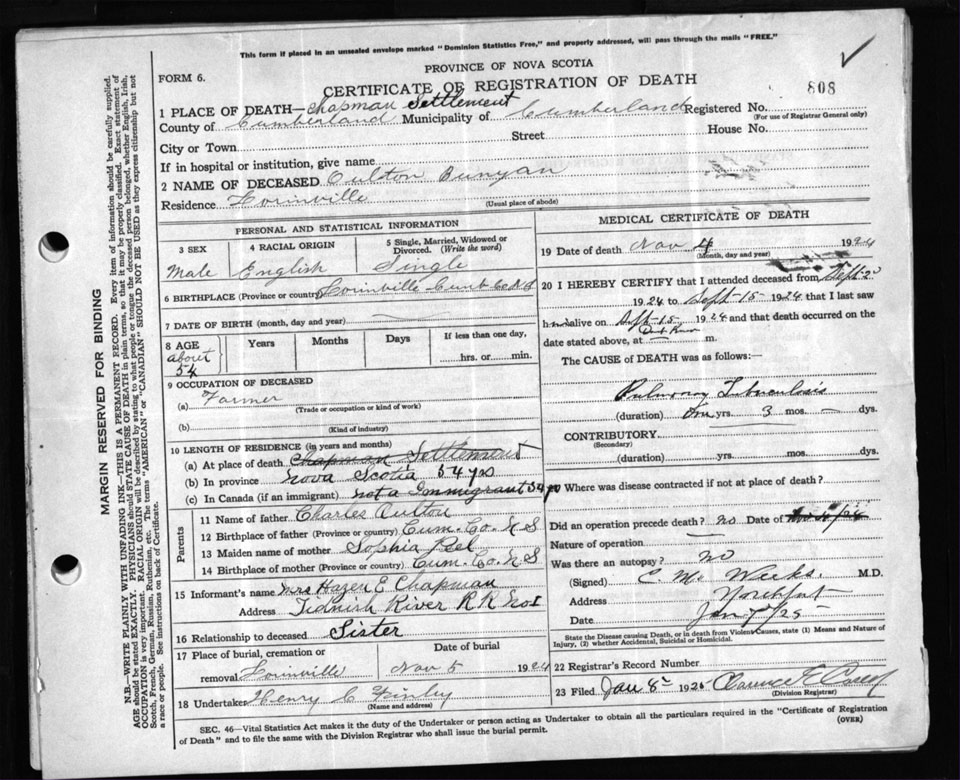 This form if placed in an unsealed envelope marked "Dominion Statistics Free," and properly addressed, will pass through the mails "FREE."
PROVINCE OF NOVA SCOTIA
FORM 6.
CERTIFICATE OF REGISTRATION OF DEATH
808
1 PLACE OF DEATH—Chapman Settlement
County of Cumberland Municipality of Cumberland Registered No.
(For use of Registrar General only)
City or Town Street House No.
If in hospital or institution, give name
2 NAME OF DECEASED Oulton Bunyan
Residence Lorinville
(Usual place of abode)
PERSONAL AND STATISTICAL INFORMATION
3 SEX 4 RACIAL ORIGIN 5 Single, Married, Widowed or Divorced. (Write the word)
Male English Single
6 BIRTHPLACE (Province or country) Lorinville Cumb Co N S
7 DATE OF BIRTH (month, day and year)
8 AGE Years Months Days If less than one day,
about 54 hrs. or min.
9 OCCUPATION OF DECEASED
(a) Farmer
(Trade or occupation or kind of work)
(b)
(Kind of industry)
10 LENGTH OF RESIDENCE (in years and months)
(a) At place of death Chapman Settlement
(b) In province Nova Scotia 54 yrs
(c) In Canada (if an immigrant) not a Immigrant 54 yrs
Parents
11 Name of father Charles Oulton
12 Birthplace of father (Province or country) Cum. Co. N S
13 Maiden name of mother Sophia Peel
14 Birthplace of mother (Province or country) Cum. Co. N S
15 Informant's name Mrs Hazen E Chapman
Address Tidnish River R R No 1
16 Relationship to deceased Sister
17 Place of burial, cremation or Date of burial
removal Lorinville Nov 5 1924
18 Undertaker Henry C Finley
(Name and address)
MEDICAL CERTIFICATE OF DEATH
19 Date of death Nov 4 1924
(Month, day and year)
20 I HEREBY CERTIFY that I attended deceased from Sept 2
1924 to Sept 15 1924 that I last saw
him alive on Sept 15 1924 and that death occurred on
date stated above, at m.
The CAUSE of DEATH was as follows:
Pulmonary Tuberculosis
(duration) yrs. 3 mos. — dys.
CONTRIBUTORY
(Secondary)
(duration) yrs. mos. dys.
21 Where was disease contracted if not at place of death?
Did an operation precede death? no Date of
Nature of operation
Was there an autopsy? no
(Signed) C. M. Weeks. M.D.
Address Northport
Date Jan 7/25
State the Disease causing Death, or in death from Violent Causes, state (1) Means and Nature of Injury, (2) whether Accidental, Suicidal or Homicidal.
22 Registrar's Record Number
23 Filed Jan 8 1925
(Division Registrar)
SEC. 46—Vital Statistics Act makes it the duty of the Undertaker or person acting as Undertaker to obtain all the particulars required in the "Certificate of Registration
of Death" and to file the same with the Division Registrar who shall issue the burial permit. (OVER)
MARGIN RESERVED FOR BINDING
N.B.—WRITE PLAINLY WITH UNFADING INK—THIS IS A PERMANENT RECORD. Every item of information should be carefully supplied.
AGE should be stated EXACTLY. PHYSICIANS should STATE CAUSE OF DEATH in plain terms, so that it may be properly classified. Exact statement of
OCCUPATION is very important. RACIAL ORIGIN will be described by stating to what people or tongue the deceased person belonged, whether English, Irish,
Scotch, French, German, Russian, Ruthenian, etc. The terms "AMERICAN" or "CANADIAN" SHOULD NOT BE USED as they express citizenship but not
a race or people. See instructions on back of Certificate.